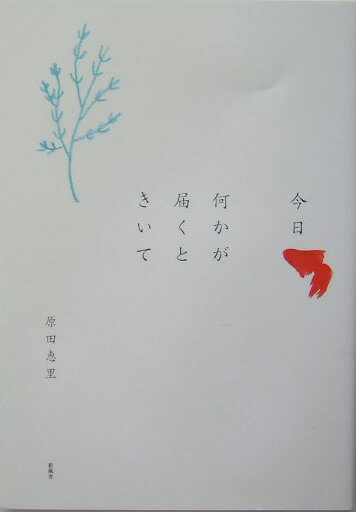 今日
何かが
届くと
きいて
原田恵里
新風舎